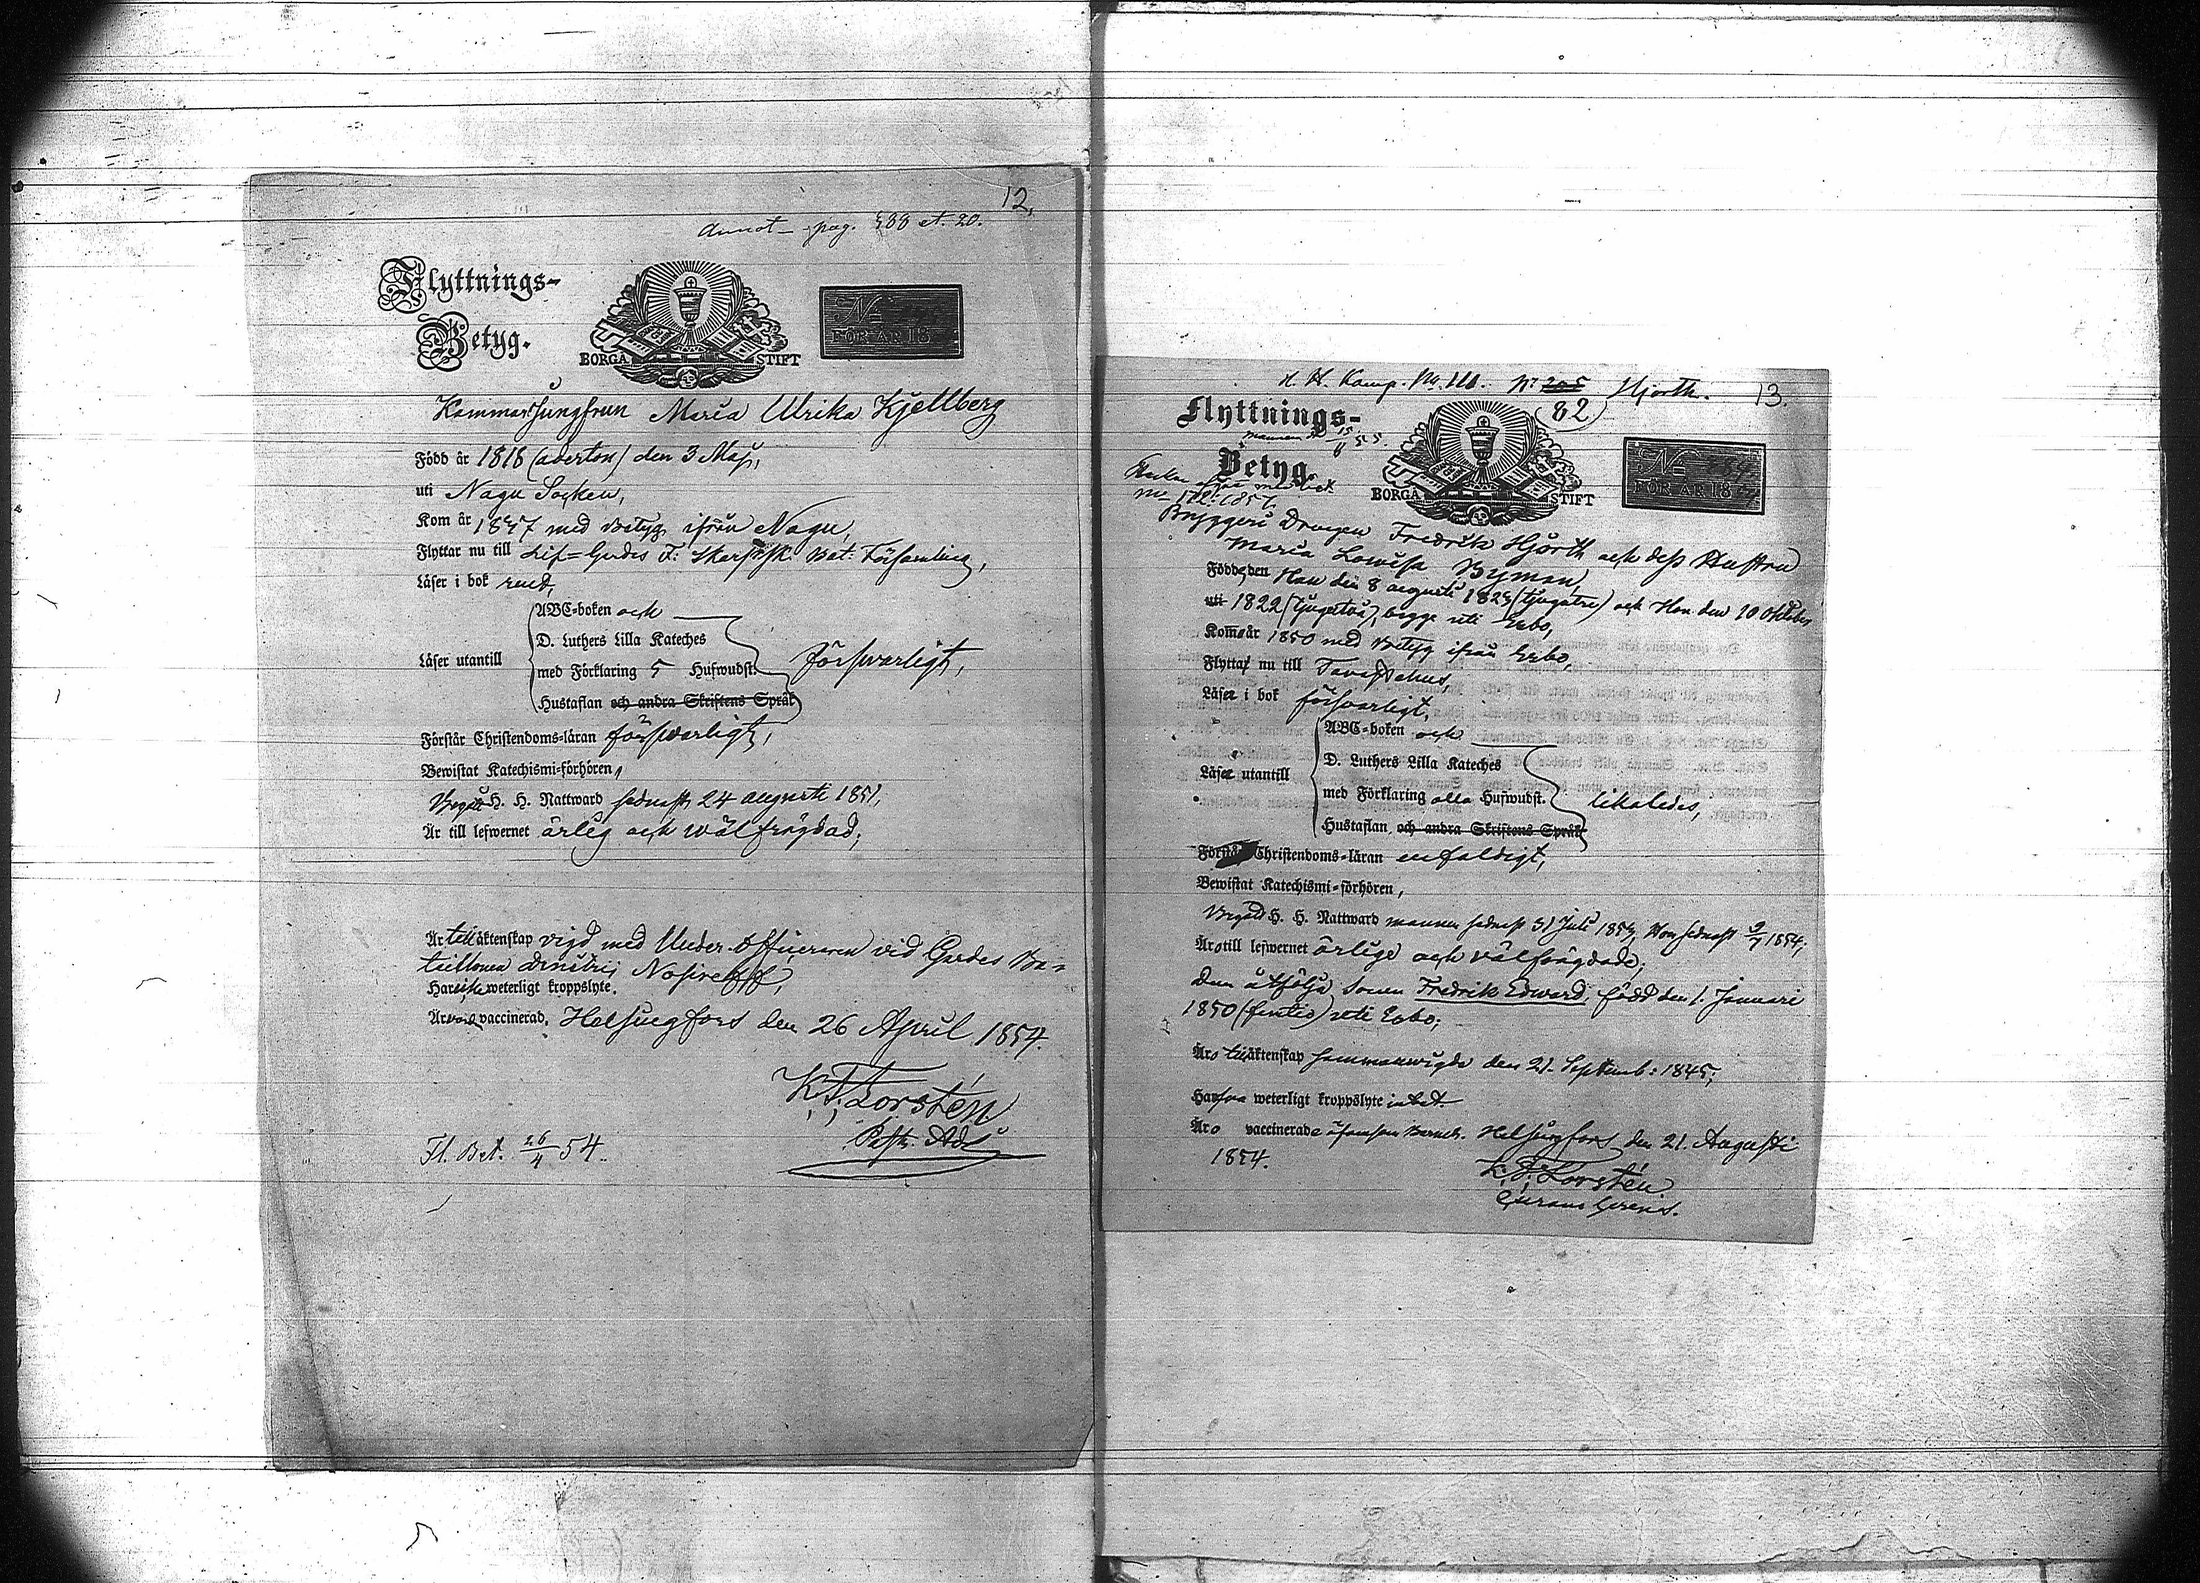 12.
Annot- pag. 588 et. 20.
Flyttnings-
Betyg.
BORGÅ STIFT
No
FÖR ÅR 18
KammarJungfrun Maria Ulrika Kjellberg
Född år 1818 (aderton) den 3 Maji,
uti Nagu Socken,
Kom år 1847 med Betyg ifrån Nagu,
Flyttar nu till Lif-Gardes F. Skarpsk. Bat. Församling,
Läser i bok rent,
Läser utantill
ABC-boken och
D. Luthers Lilla Kateches
med Förklaring 5 Hufwudst.
Hustaflan och andra Skriftens Språk
försvarligt,
Förstår Christendoms-läran försvarligt,
Bewistat Katechismi-förhören,
Begått H. H. Nattward sednast 24 augusti 1851,
Är till lefwernet ärlig och wälfrägdad;
Är till äktenskap vigd med Under-Officeraren vid Gardes Ba-
taillonen Dmitrij
Har icke weterligt kroppslyte.
Är vaccinerad. Helsingfors den 26 April 1854.
K. F. Forstén
Past. Adj.
Fl. Bet. 26/4 54.
H. H. Kamp. No 205 Hjorth. 13.
(82)
Flyttnings-
Betyg.
mannen 15/6 55.
No 172. 1857.
BORGÅ STIFT
No
FÖR ÅR 18
Bryggeri Drängen Fredrik Hjorth och dess Hustru
Maria Lowisa Byman,
Födde den Han den 8 augusti 1823 (tjugutre) och Hon den 10 Oktober
uti 1822 (tjugutvå), begge uti Esbo,
Komne år 1850 med Betyg ifrån Esbo,
Flytta nu till Tavastehus
Läsa i bok försvarligt,
Läsa utantill
ABC-boken och
D. Luthers Lilla Kateches
med Förklaring alla Hufwudst.
Hustaflan och andra Skriftens Språk
likaledes,
Förstå Christendoms-läran enfaldigt,
Bewistat Katechismi-förhören,
Begått H. H. Nattward mannen sednast 31 Juli 1853, Hon sednast 9/7 1854;
Äro till lefwernet ärlige och välfrägdade;
Dem åtfölja sonen Fredrik Edward, född den 1. Januari
1850 (femtio) uti Esbo;
Äro till äktenskap sammanwigde den 21. Septemb: 1845;
Hafva weterligt kroppslyte intet.
Äro vaccinerade äfvensom Barnet. Helsingfors den 21. Augusti
1854.
K. F. Forstén.
Curam Gerens.